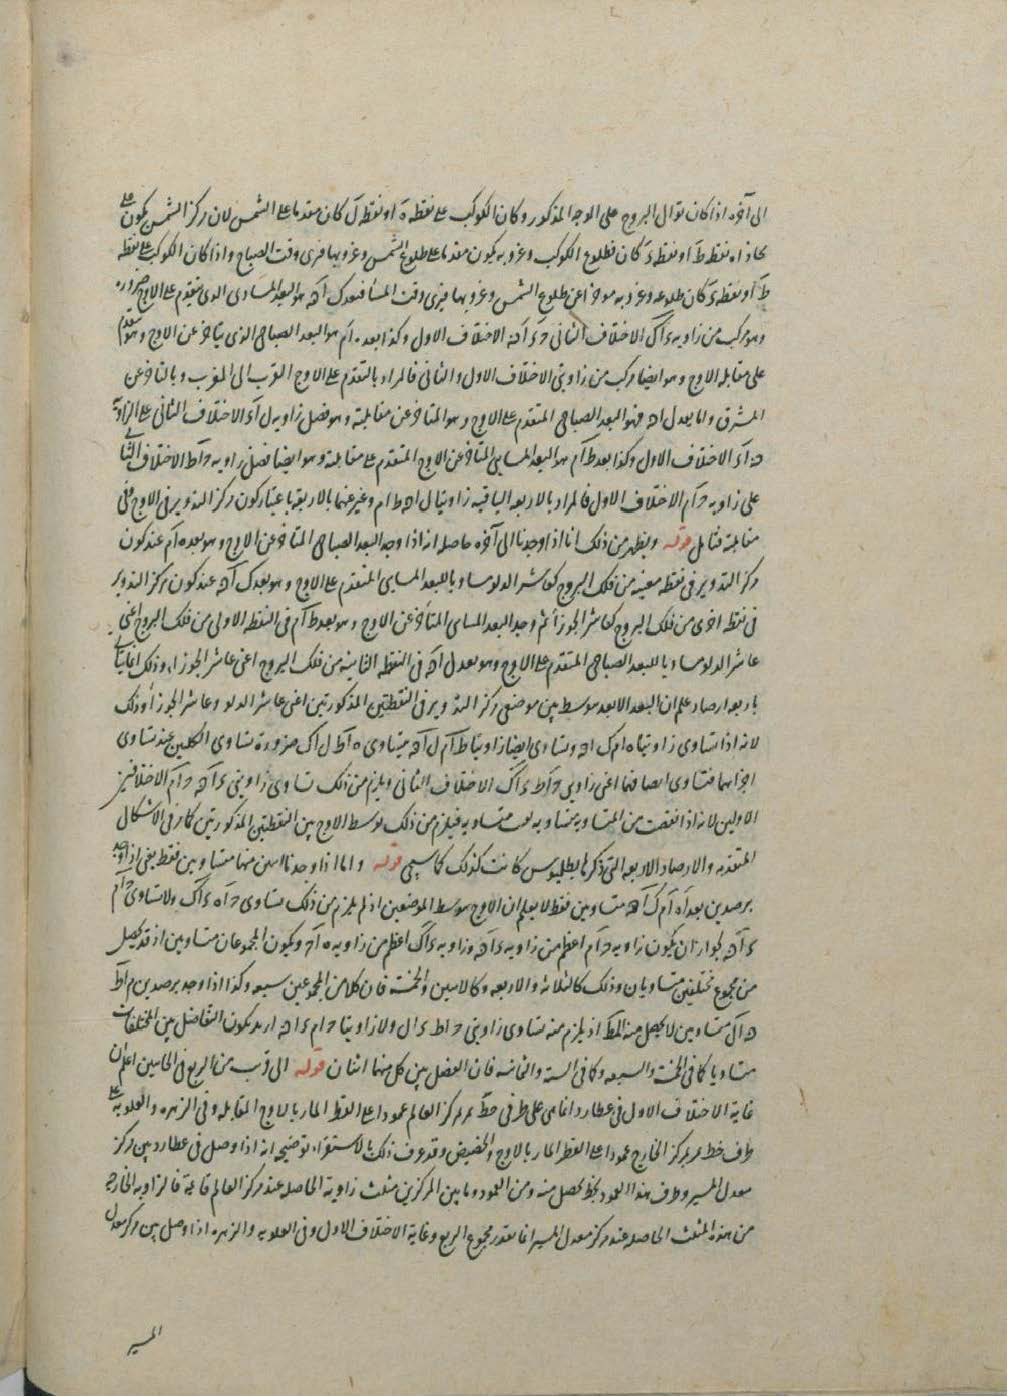 الى آخره اذا كان توالى البروج على الوجه المذكور وكان الكوكب على نقطة ه او نقطة ل كان مقدما على الشمس لان مركز الشمس يكون على
محاذاة نقطة ط او نقطة كان فطلوع الكوكب وغروبه يكون مقدما على طلوع الشمس وغروبها فيرى وقت الصباح واذا كان الكوكب على نقطة
ط او نقطة كان طلوعه وغروبه موخرا عن طلوع الشمس وغروبها فيرى وقت المسا فبعد ك اه هو البعد المساوى الذى يتقدم على الاوج ضرورة
وهو مركب من زاوية ه اك الاختلاف الثانى و اه الاختلاف الاول وكذا بعد ه ام هو البعد الصباحى الذى يتاخر عن الاوج وهو متقدم
على مقابلة الاوج وهو ايضا مركب من زاويتى الاختلاف الاول والثانى فالمراد بالتقدم على الاوج القرب الى المغرب وبالتاخر عن
المشرق واما بعد ل اه فهو البعد الصباحى المتقدم على الاوج وهو المتاخر عن مقابلته وهو فضل زاوية ل اء الاختلاف الثانى على الزاوية
ه اء الاختلاف الاول وكذا بعد ط ام هو البعد المسايى المتاخر عن الاوج المتقدم على مقابلته وهو ايضا فضل زاوية ح اط الاختلاف الثانى
على زاوية ح ام الاختلاف الاول فالمراد بالاربعة الباقية زاويتا ل اه ط ام وغير عنهما بالاربعة باعتبار كون مركز التدوير فى الاوج وفى
مقابلته فتامل قوله ويظهر من ذلك انا اذا وجدنا الى آخره حاصله انه اذا وجد البعد الصباحى المتاخر عن الاوج وهو بعد ه ام عند كون
مركز التدوير فى نقطة معينة من فلك البروج كعاشر الدلو مساويا للبعد المسايى المتقدم على الاوج وهو بعد ك اه عند كون مركز التدوير
فى نقطة اخرى من فلك البروج كعاشر الجوزا ثم وجد البعد المسايى المتاخر عن الاوج وهو بعد ط ام فى النقطة الاولى من فلك البروج اعنى
عاشر الدلو مساويا للبعد الصباحى المتقدم على الاوج وهو بعد ل اه فى النقطة الثانية من فلك البروج اعنى عاشر الجوزاء وذلك انما يتاتى
باربعة ارصاد علم ان البعد الابعد متوسط بين موضعى مركز التدوير فى النقطتين المذكورتين اعنى عاشر الدلو وعاشر الجوزا وذلك
لانه اذا تساوى زاويتا ه ام ك اه وتساوى ايضا زاويتا ط ام ل اه يتساوى ه اط ل اك ضرورة تساوى الكلين عند تساوى
اجزائهما فتساوى انصافهما اعنى زاويتى ح اط ء اك الاختلاف الثانى ويلزم من ذلك تساوى زاويتى ء اه ح ام الاختلافين
الاولين لانه اذا نقصت من المتساوية متساوية بقيت متساوية فيلزم من ذلك توسط الاوج بين النقطتين المذكورتين كما فى الاشكال
المتقدمة والارصاد الاربعة التى ذكرها بطلميوس كانت كذلك كما سيجى قوله واما اذا وجدنا اثنين منها متساويين فقط يعنى اذا وجد
برصدين بعد ه ام ك اه متساويين فقط لا يعلم ان الاوج متوسط الموضعين اذ لم يلزم من ذلك تساوى ح اه ء اك ولا تساوى ح ام
ء اه لجواز ان يكون زاوية ح ام اعظم من زاوية ء اه وزاوية ء اك اعظم من زاوية ه اح ويكون المجموعان متساويين اذ قد يحصل
من مجموع مختلفين متساويان وذلك كالثلاثة والاربعة وكالاثنين والخمسة فان كلا من المجموعين سبعة وكذا اذا وجد برصدين م اط
ه ال متساويين لا يحصل منه المط اذ يلزم منه تساوى زاويتى ح اط ء ال ولا زاويتا ح ام ء اه اذ قد يكون التفاضل بين المختلفات
متساويا كما فى الخمسة والسبعة وكما فى الستة والثمانية فان الفضل بين كل منهما اثنان قوله الى قرب من الربع فى الجانبين اعلم ان
غاية الاختلاف الاول فى عطارد انما هى على طرفى خط يمر بمركز العالم عمودا على القطر المار بالاوج المقابلة وفى الزهرة والعلوية على
طرف خط يمر بمركز الخارج عمودا على القطر المار بالاوج والحضيض وقد عرف ذلك بالاستقراء توضيحه انه اذا وصل فى عطارد بين مركز
معدل المسير وطرف هذا العمود بخط يحصل منه ومن العمود وما بين المركزين مثلث زاويته الحاصلة عند مركز العالم قائمة فالزاوية الخارجة
من هذه المثلث الحاصلة عند مركز معدل المسير انما بقدر مجموع الربع وغاية الاختلاف الاول وفى العلوية والزهرة اذا وصل بين مركز معدل
المسير